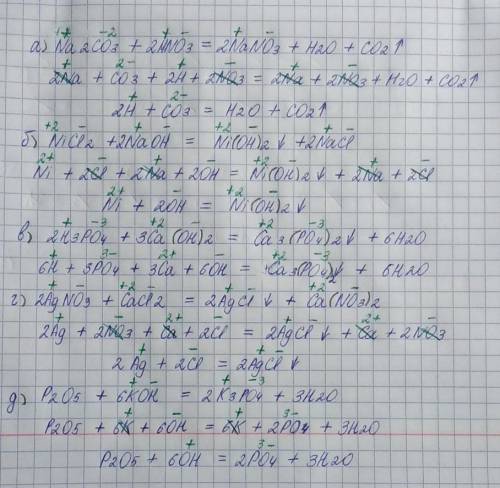 а) Na2CO3 + 2HNO3 = 2NaNO3 + H2O + CO2↑
2Na⁺ + CO3²⁻ + 2H⁺ + 2NO3⁻ = 2Na⁺ + 2NO3⁻ + H2O + CO2↑
2H⁺ + CO3²⁻ = H2O + CO2↑
б) Ni⁺²Cl2⁻ + 2Na⁺OH⁻ = Ni⁺²(OH)⁻2↓ + 2Na⁺Cl⁻
Ni²⁺ + 2Cl⁻ + 2Na⁺ + 2OH⁻ = Ni⁺²(OH)⁻2↓ + 2Na⁺ + 2Cl⁻
Ni²⁺ + 2OH⁻ = Ni⁺²(OH)⁻2↓
в) 2H⁺3PO4⁻³ + 3Ca⁺²(OH)⁻2 = Ca⁺²3(PO4)⁻³2↓ + 6H2O
6H⁺ + 3PO4³⁻ + 3Ca²⁺ + 6OH⁻ = Ca⁺²3(PO4)⁻³2↓ + 6H2O
г) 2Ag⁺NO3⁻ + Ca⁺²Cl2⁻ = 2Ag⁺Cl⁻↓ + Ca⁺²(NO3)⁻2
2Ag⁺ + 2NO3⁻ + Ca²⁺ + 2Cl⁻ = 2Ag⁺Cl⁻↓ + Ca²⁺ + 2NO3⁻
2Ag⁺ + 2Cl⁻ = 2Ag⁺Cl⁻↓
д) P2O5 + 6K⁺OH⁻ = 2K⁺3PO4⁻³ + 3H2O
P2O5 + 6K⁺ + 6OH⁻ = 6K⁺ + 2PO4³⁻ + 3H2O
P2O5 + 6OH⁺ = 2PO4³⁻ + 3H2O